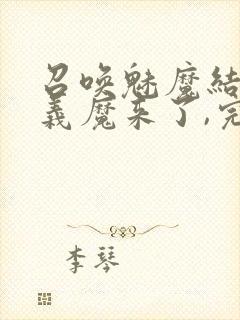 召唤魅魔结
义魔来了,完
李琴